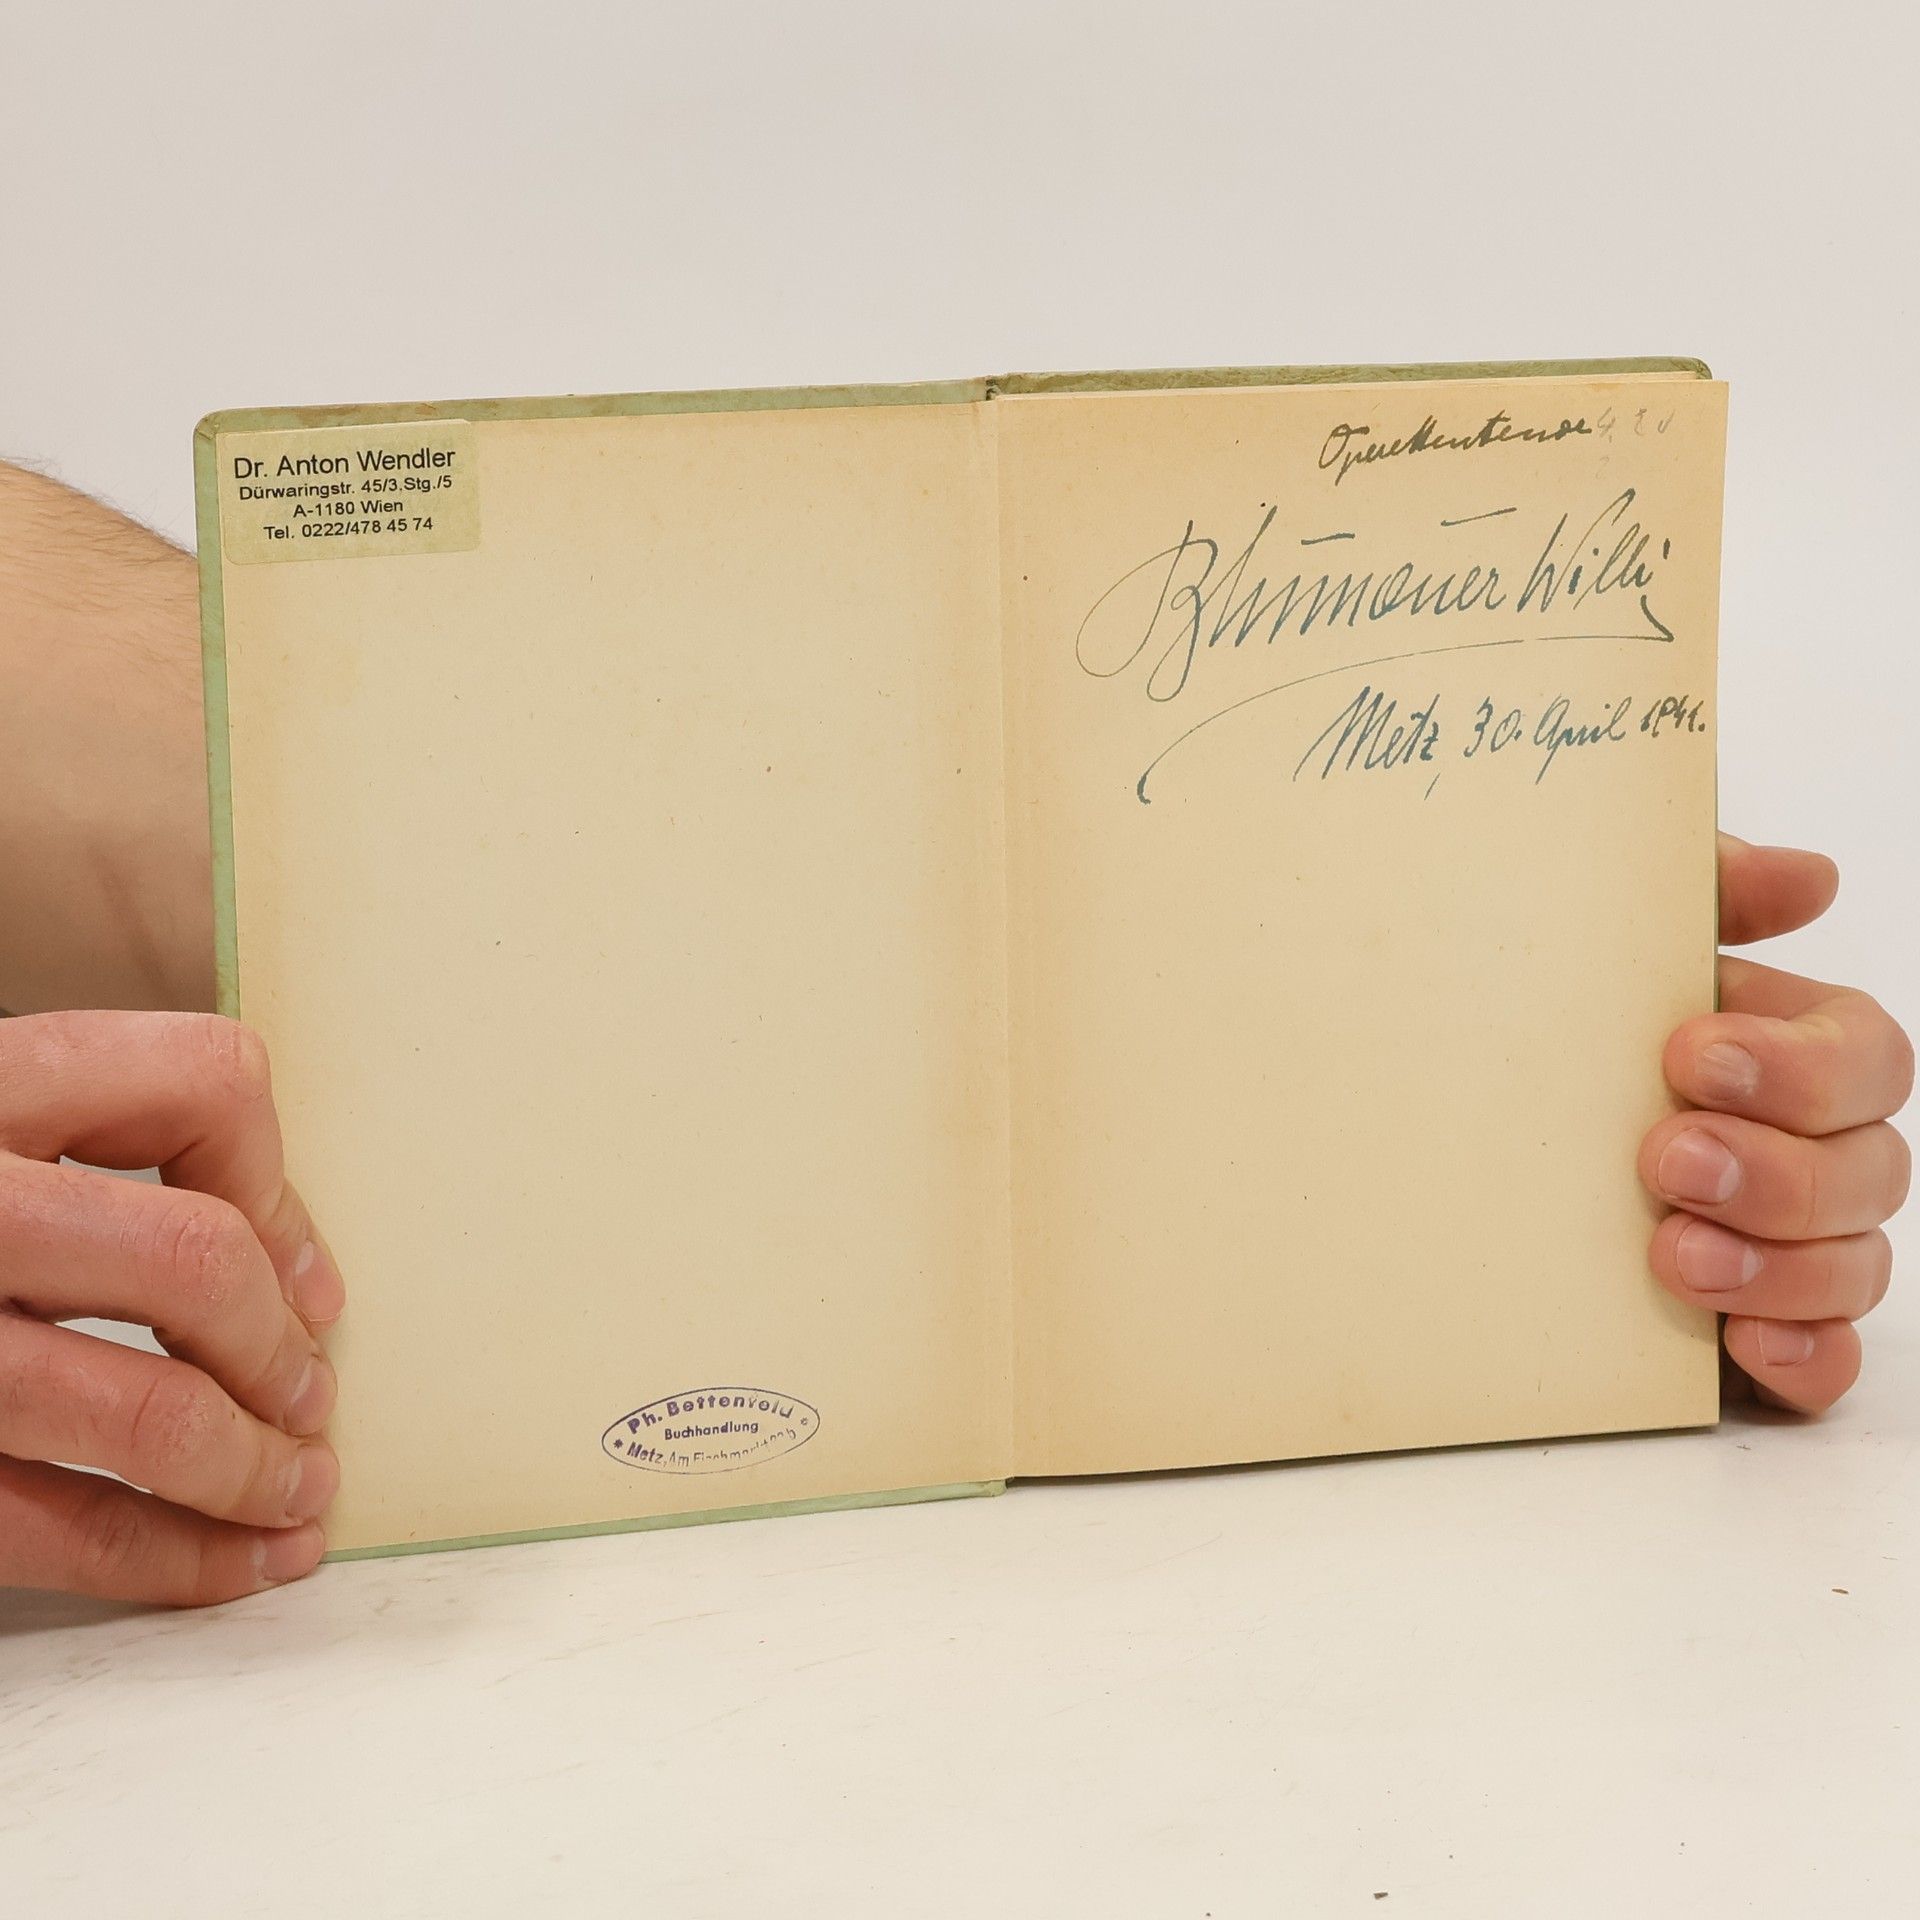 Dr. Anton Wendler
Dürwaringstr. 45/3.Stg./5
A-1180 Wien
Tel. 0222/478 45 74
Operettentenor
Blumauer Willi
Metz, 30. April 1941.
Ph. Bettenfeld
Buchhandlung
Metz, Am Fischmarkt